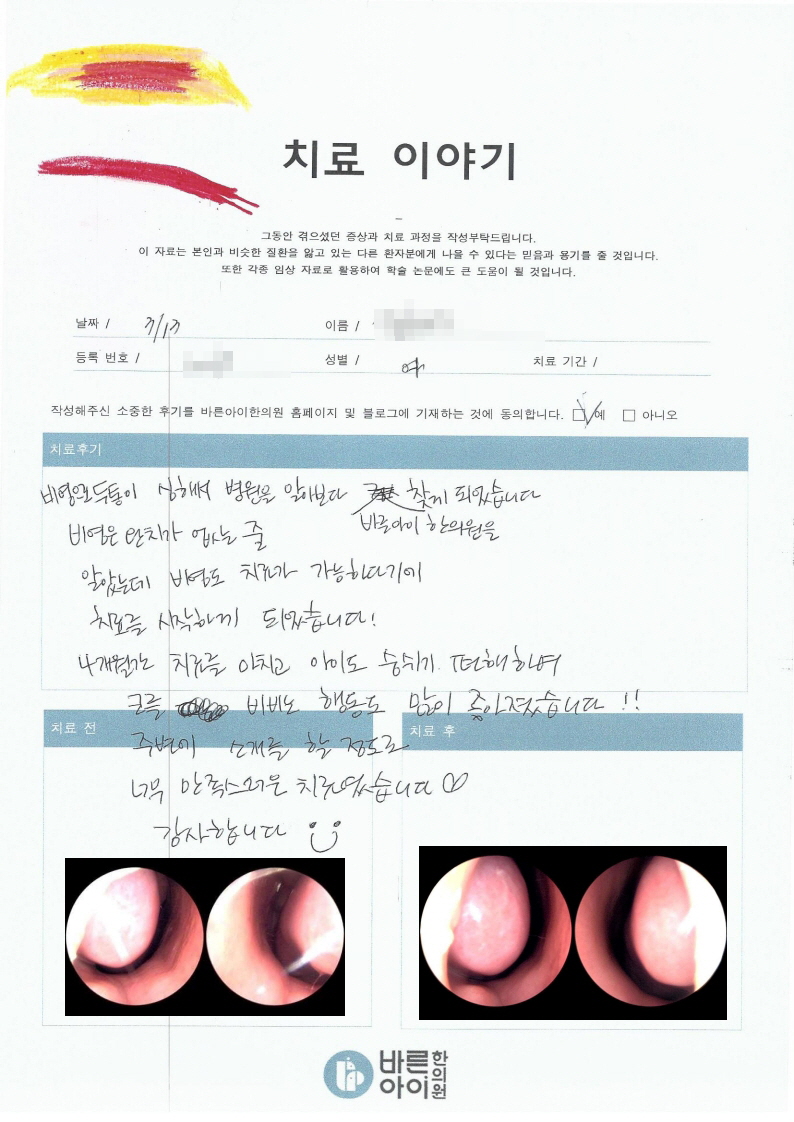 치료 이야기
그동안 겪으셨던 증상과 치료 과정을 작성부탁드립니다.
이 자료는 본인과 비슷한 질환을 앓고 있는 다른 환자분에게 나을 수 있다는 믿음과 용기를 줄 것입니다.
또한 각종 임상 자료로 활용하여 학술 논문에도 큰 도움이 될 것입니다.
날짜 / 7/17 이름 /
등록 번호 / 성별 / 여 치료 기간 /
작성해주신 소중한 후기를 바른아이한의원 홈페이지 및 블로그에 기재하는 것에 동의합니다. 예 아니오
치료후기
비염으로 두통이 심해서 병원을 알아보다 찾게 되었습니다
바른아이 한의원을
비염은 완치가 없는 줄
알았는데 비염도 치료가 가능하다기에
치료를 시작하게 되었습니다!
4개월간 치료를 마치고 아이도 숨쉬기 편해하며
코를 비비는 행동도 많이 좋아졌습니다 !!
치료 전 치료 후
주변에 소개를 할 정도로
너무 만족스러운 치료였습니다
감사합니다
바른아이한의원